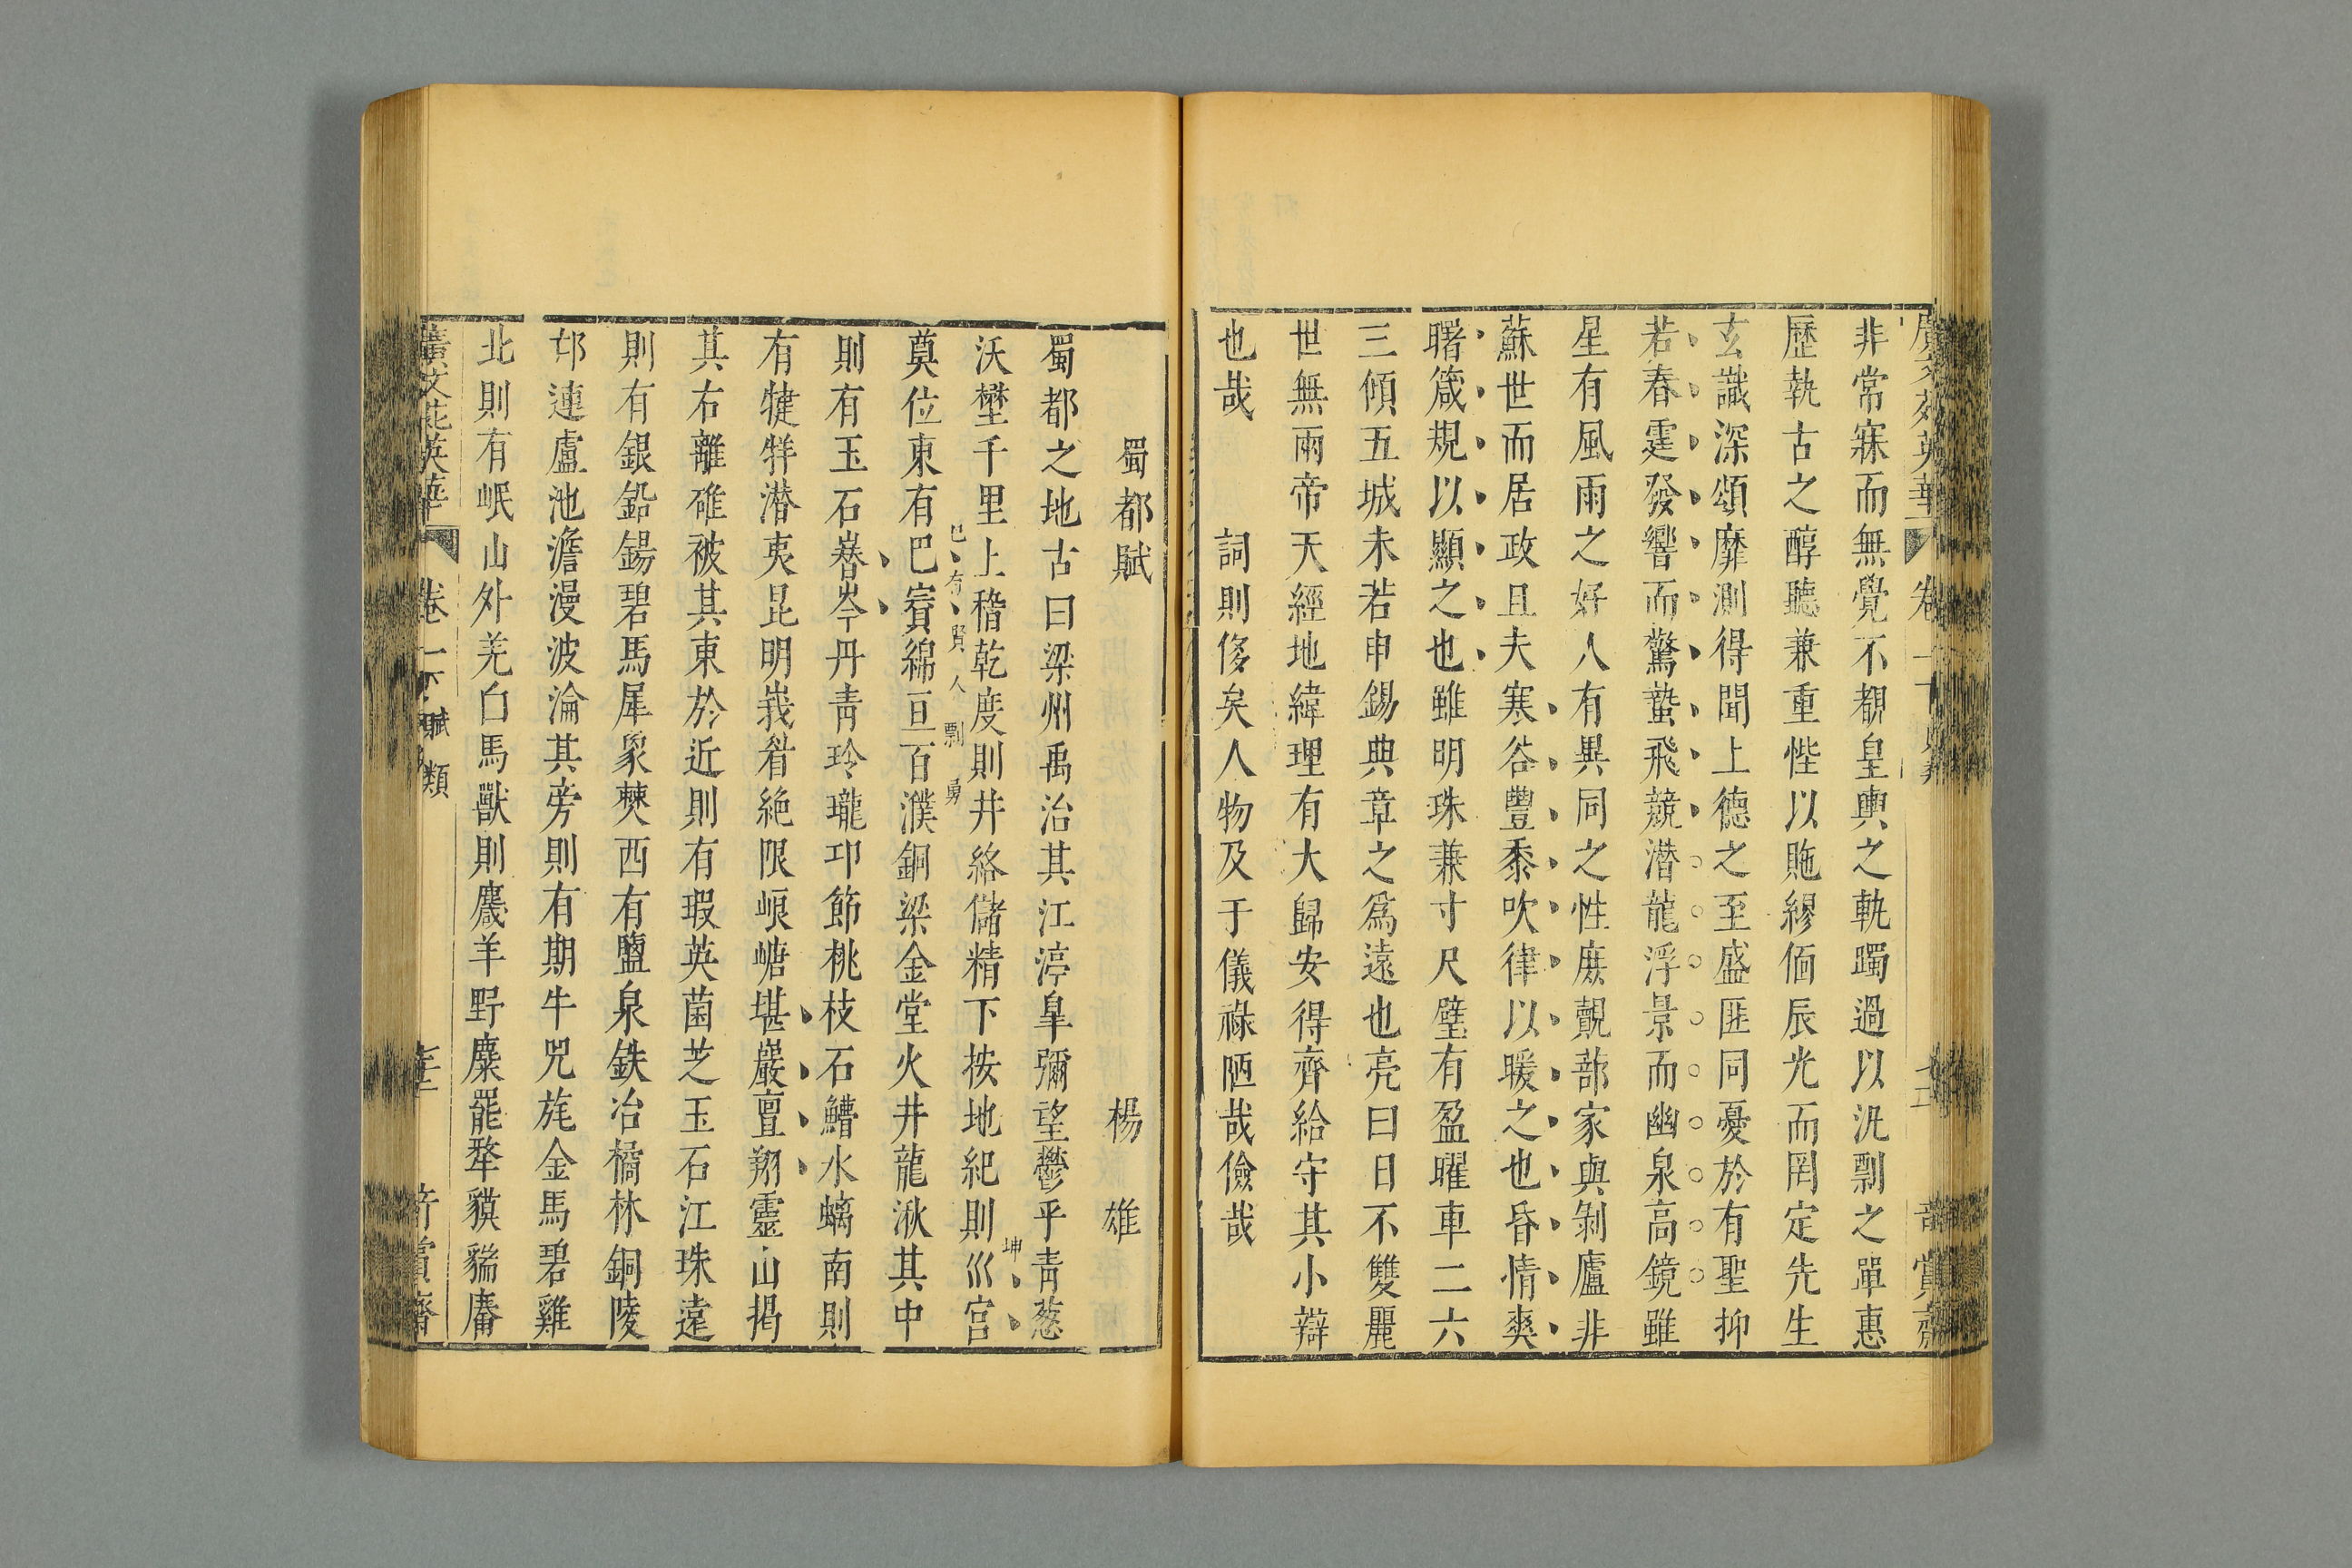 非常寐而無覺不覩皇輿之軌躅過以汎剽之單惠
歷執古之醇聽兼重悂以貤繆偭辰光而罔定先生
玄識深頌靡測得聞上德之至盛匪同憂於有聖抑
若春霆發響而驚蟄飛競潛龍浮景而幽泉高鏡雖
星有風雨之好人有異同之性庶覿蔀家與剝廬非
蘇世而居政且夫寒谷豐黍吹律以暖之也昏情爽
曙箴規以顯之也雖明珠兼寸尺璧有盈曜車二六
三傾五城未若申錫典章之爲遠也亮曰日不雙麗
世無兩帝天經地緯理有大歸安得齊給守其小辯
也哉
詞則侈矣人物及于儀祿陋哉儉哉
蜀都賦 楊雄
蜀都之地古曰梁州禹治其江渟皐彌望鬱乎青葱
沃壄千里上稽乾度則井絡儲精下按地紀則巛宫
坤
奠位東有巴賨綿亘百濮銅梁金堂火井龍湫其中
巴有賢人剽勇
則有玉石嶜岑丹青玲瓏邛節桃枝石鱛水螭南則
有犍牂潜夷昆明峩眉絶限㟍嵣堪巖亶翔靈山揭
其右離碓被其東於近則有瑕英菌芝玉石江珠遠
則有銀鉛錫碧馬犀象僰西有鹽泉鉄冶橘林銅陵
邙連盧池澹漫波淪其旁則有期牛兕旄金馬碧雞
北則有岷山外羌白馬獸則麙羊野麋罷犛貘貒麢
廣文苑英華 卷 賦類